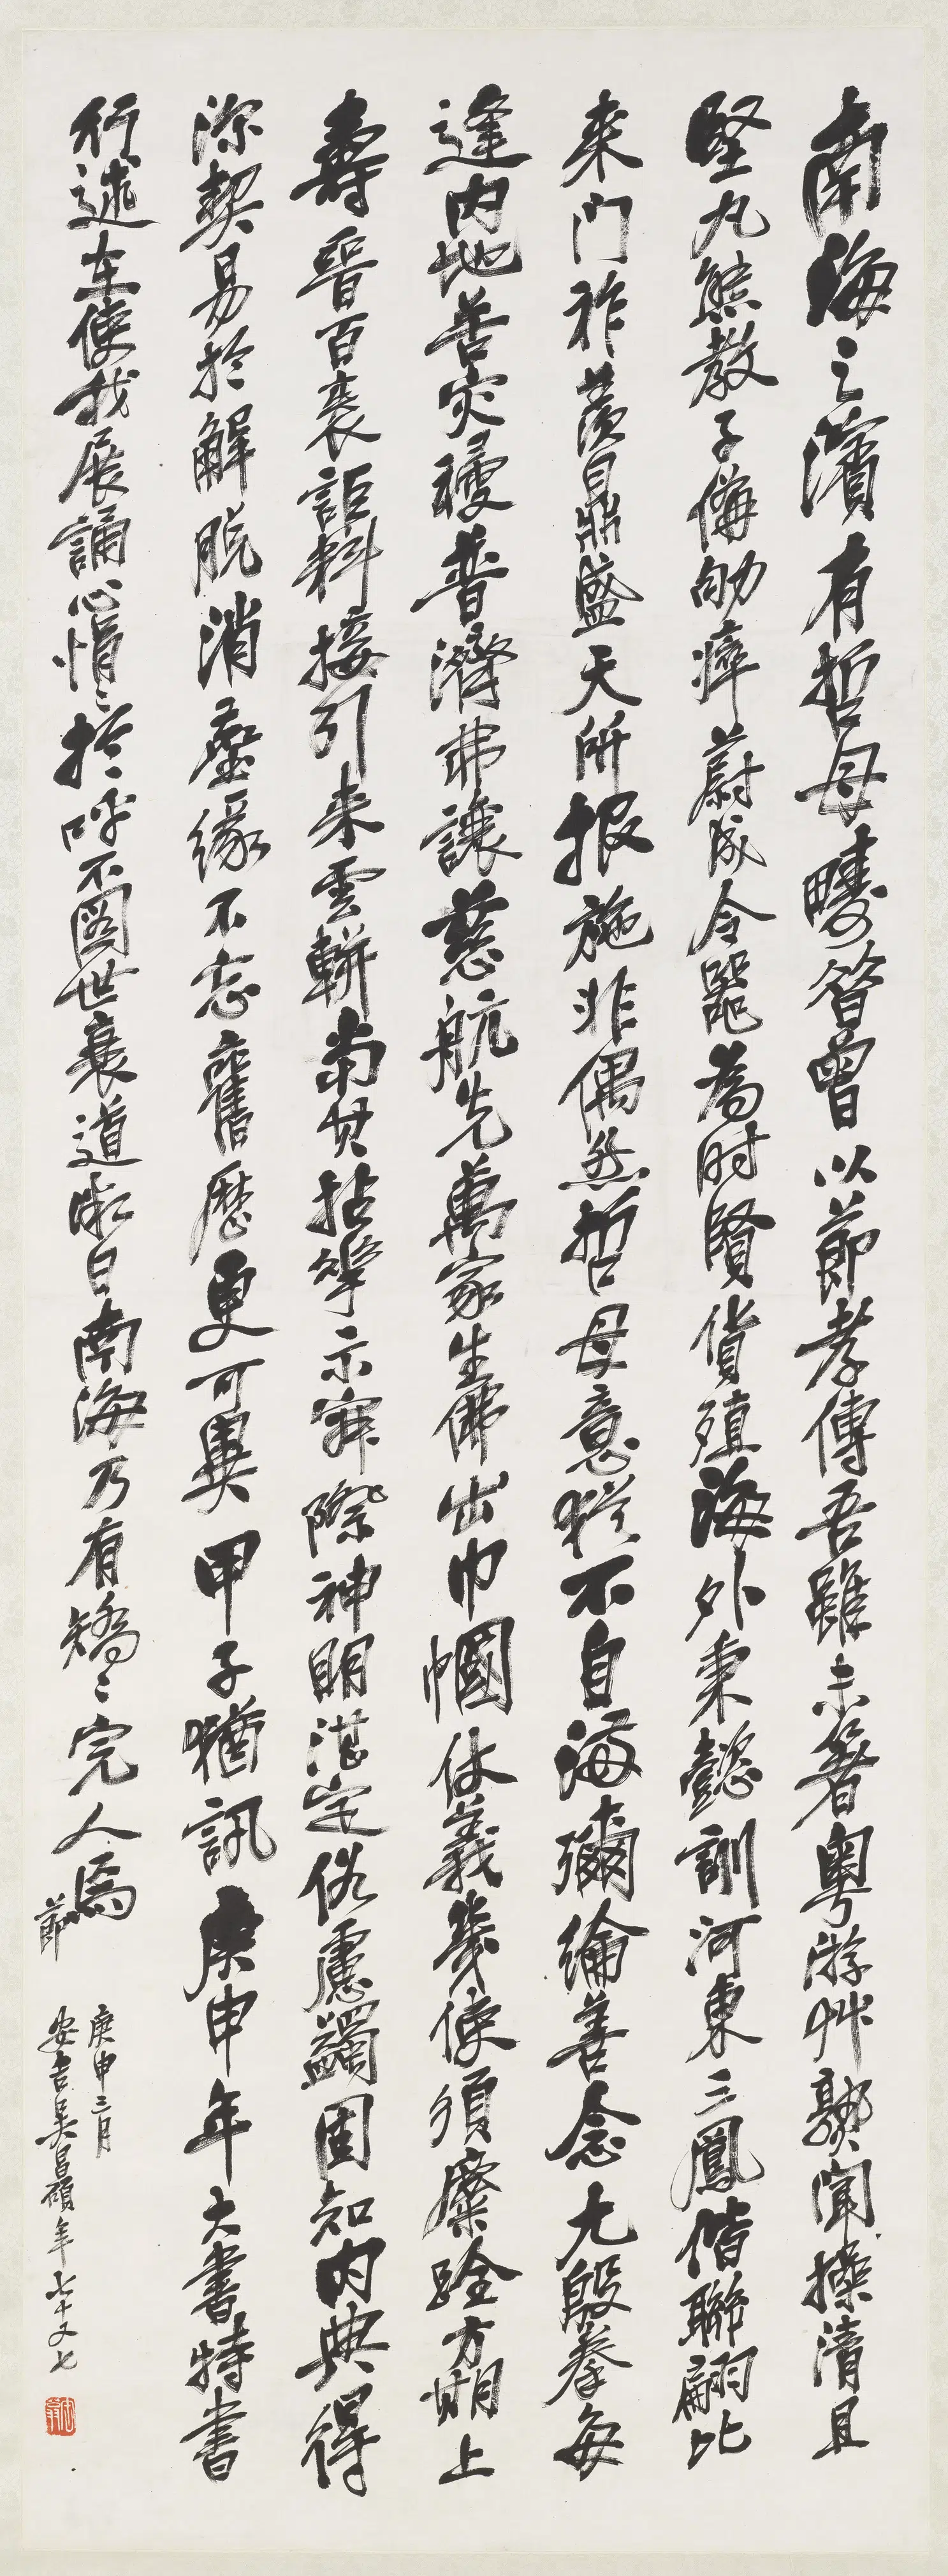 南海之濱有哲母疇昔曾以節孝傳吾雖未著粵游艸熟聞操清且
堅丸熊教子備劬瘁蔚成令器為時賢貨殖海外秉懿訓河東三鳳偕聯翩比
来門祚羨日鼎盛天所报施非偶然哲母意猶不自海彌綸善念尤殷拳每
逢内地苦灾祲普濟弗讓慈航先萬家生佛出巾幗仗義幾使須麋跧方期上
壽晉百袠詎料接引来雲軿嘗其拈華示寂際神明湛定俗慮蠲固知内典得
深契易於解脱消塵緣不忘舊歷更可異甲子猶訊庚申年大書特書
行述在使我展誦心惛〻於呼不圖世衰道微日南海乃有矯〻完人焉
節
庚申二月
安吉吴昌碩年七十又七